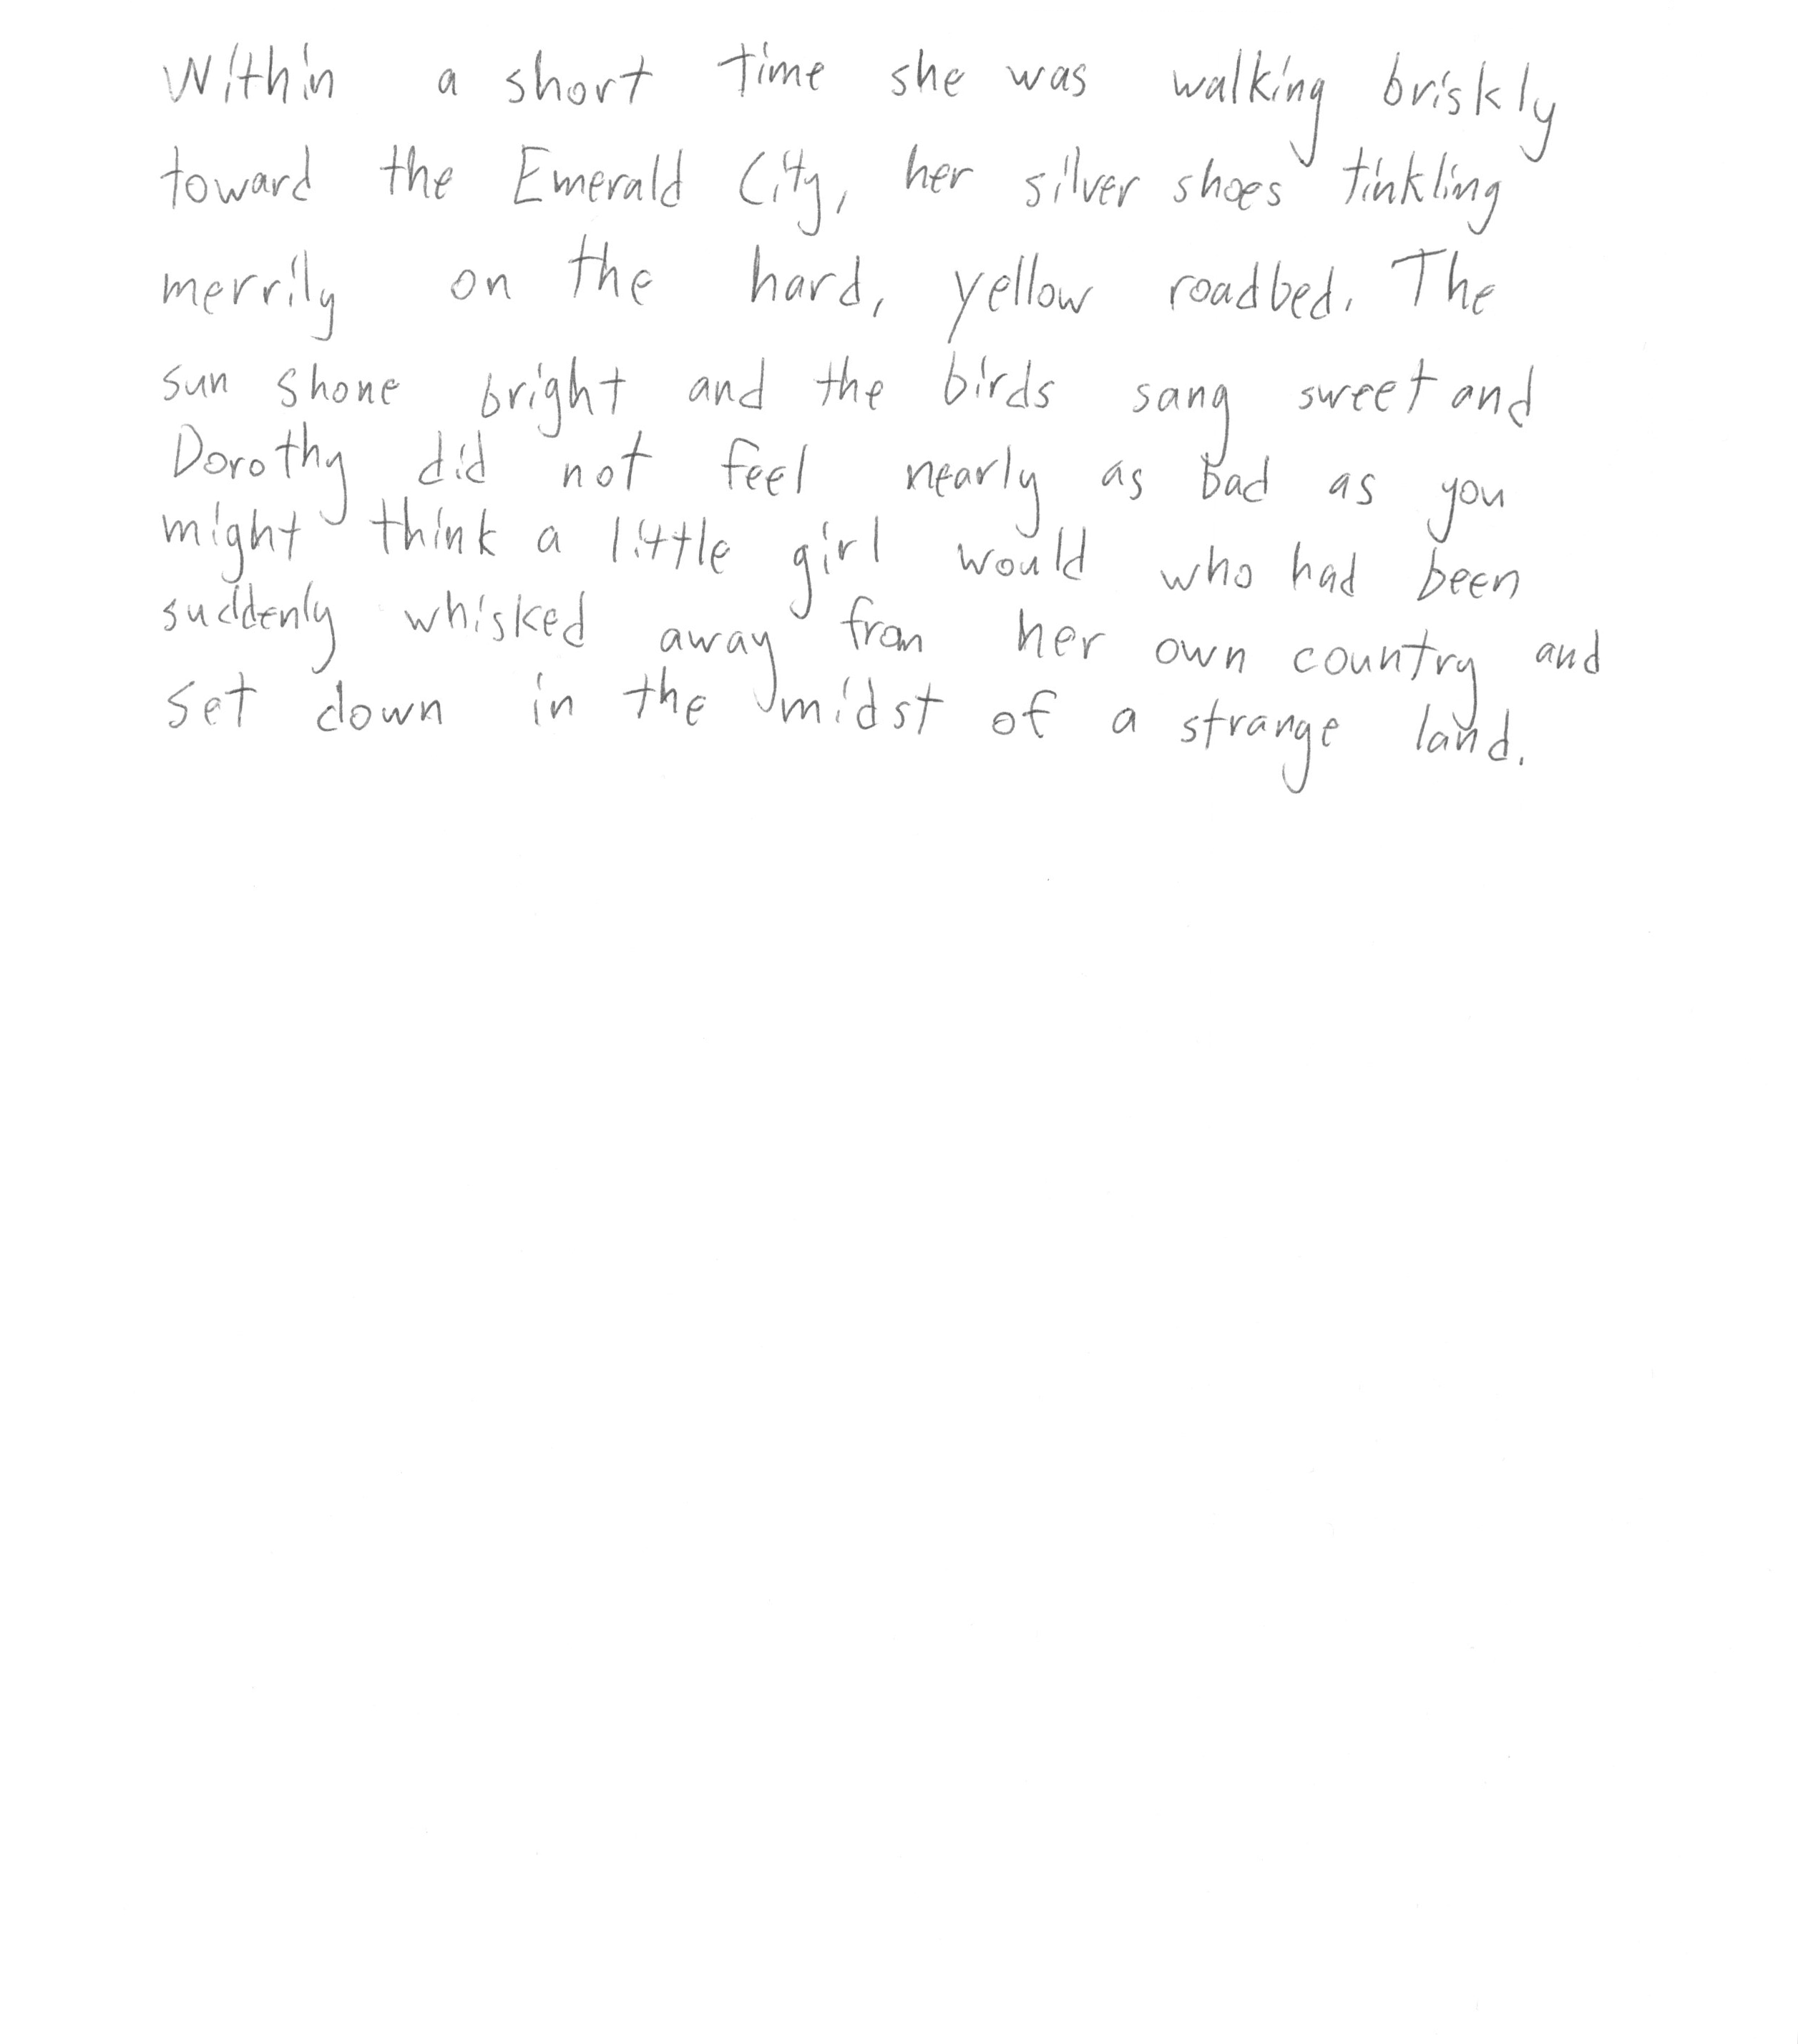 Within a short time she was walking briskly
toward the Emerald City, her silver shoes tinkling
merrily on the hard, yellow roadbed. The
sun shone bright and the birds sang sweet and
Dorothy did not feel nearly as bad as you
might think a little girl would who had been
suddenly whisked away from her own country and
set down in the midst of a strange land.